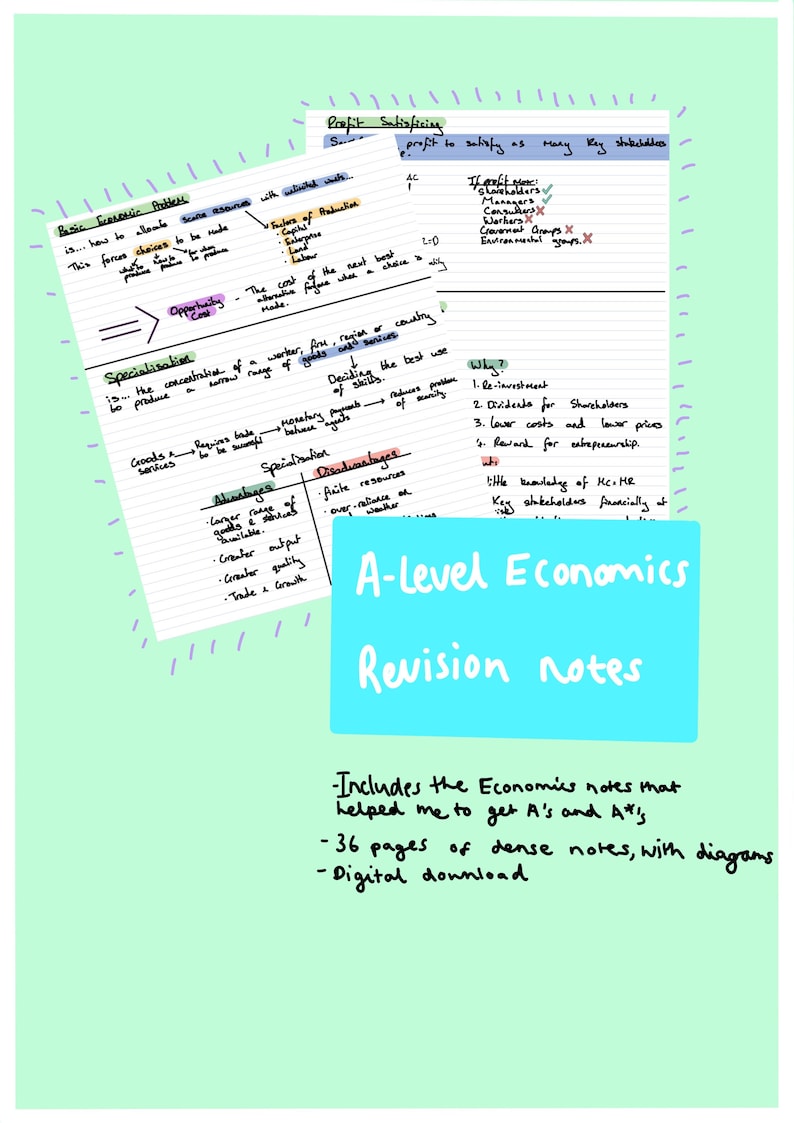 Profit Satisficing
profit to satisfy as many key stakeholders
AC
If profit max:
Shareholders ✓
Managers ✓
Consumers ✗
Workers ✗
Government Groups ✗
Environmental groups. ✗
Why?
1. Re-investment
2. Dividends for Shareholders
3. Lower costs and lower prices
4. Reward for entrepreneurship.
little knowledge of MC=MR
Key stakeholders financially at
Basic Economic Problem
is... how to allocate scarce resources with unlimited wants...
This forces choices to be made
what to produce
how to produce
for whom to produce
Factors of Production
· Capital
· Enterprise
· Land
· Labour
Opportunity Cost
- The cost of the next best
alternative forgone when a choice is
made.
Specialisation
is... the concentration of a worker, firm, region or country
to produce a narrow range of goods and services.
Deciding the best use
of skills.
Goods & services → Requires trade to be successful → Monetary payments between agents → reduces problem of scarcity.
Specialisation
Advantages
· Larger range of
goods & services
available.
· Greater output
· Greater quality
· Trade & Growth
Disadvantages
· finite resources
· over-reliance on
weather
A-Level Economics
Revision notes
-Includes the Economics notes that
helped me to get A's and A*'s
- 36 pages of dense notes, with diagrams
- Digital download